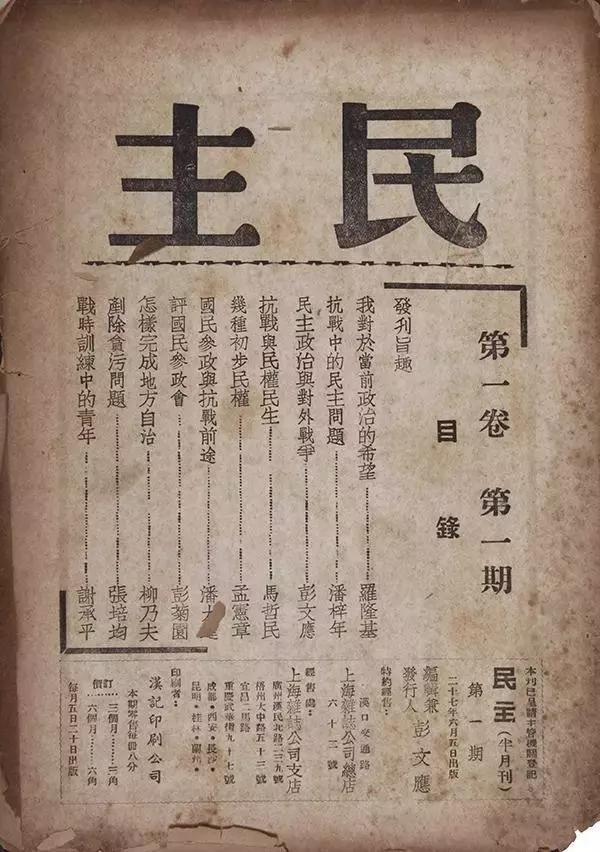 民主
第一卷 第一期
目錄
發刊旨趣
我對於當前政治的希望 羅隆基
抗戰中的民主問題 潘梓年
民主政治與對外戰爭 彭文應
抗戰與民權民生 馬哲民
幾種初步民權 孟憲章
國民參政與抗戰前途 潘大逵
評國民參政會 彭菊園
怎樣完成地方自治 柳乃夫
剷除貪污問題 張培均
戰時訓練中的青年 謝承平
本刊已呈請主管機關登記
民主(半月刊)
第一期
二十七年六月五日出版
編輯兼發行人 彭文應
特約經售:
漢口交通路
上海雜誌公司總店
六十二號
經售處:
上海雜誌公司支店
廣州漢民北路二三九號
梧州大中路五十三號
宜昌二馬路
重慶武庫街九十七號
成都•西安•長沙•
昆明•桂林•蘭州•
印刷者:
漢記印刷公司
本期零售每冊八分
訂價
三個月……三角
六個月……六角
每月五日二十日出版